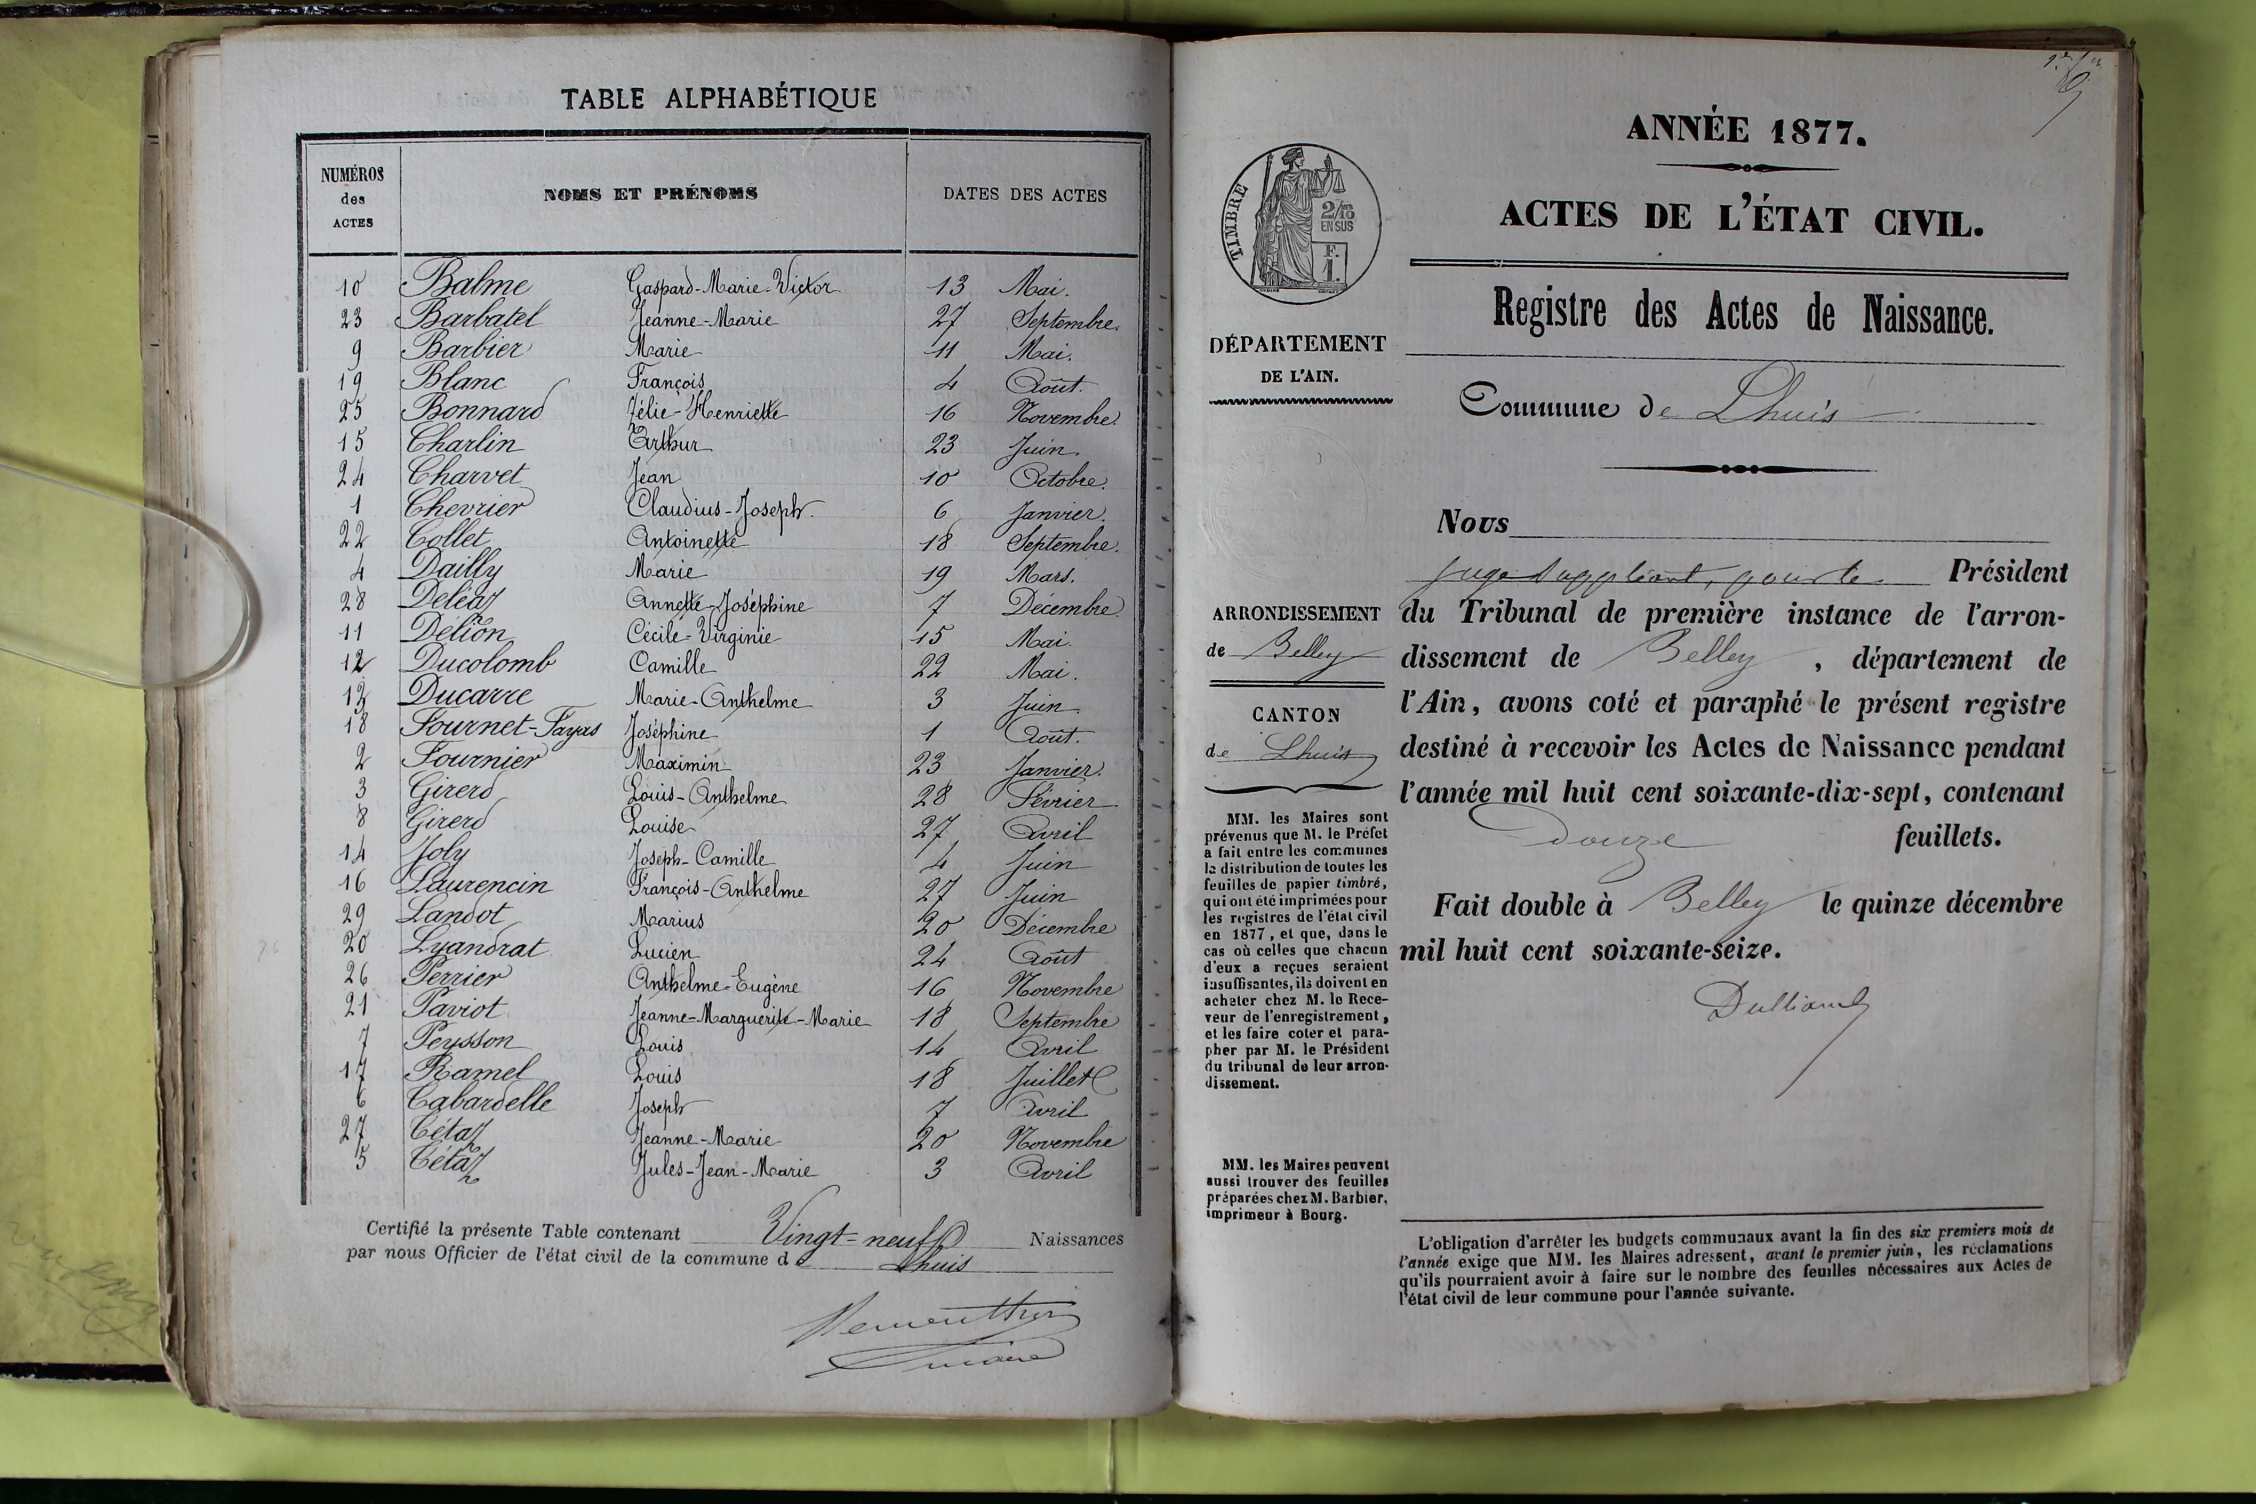 TABLE ALPHABÉTIQUE
NUMÉROS des ACTES NOMS ET PRÉNOMS DATES DES ACTES
10 Balme Gaspard-Marie-Victor 13 Mai.
23 Barbatel Jeanne-Marie 27 Septembre.
9 Barbier Marie 11 Mai.
19 Blanc François 4 Août.
25 Bonnard Zélie-Henriette 16 Novembre.
15 Charlin Arthur 23 Juin.
24 Charvet Jean 10 Octobre.
1 Chevrier Claudius-Joseph. 6 Janvier.
22 Collet Antoinette 18 Septembre.
4 Dailly Marie 19 Mars.
28 Deléaz Annette-Joséphine 7 Décembre
11 Délion Cécile-Virginie 15 Mai.
12 Ducolomb Camille 22 Mai.
13 Ducarre Marie-Anthelme 3 Juin
18 Fournet-Fayas Joséphine 1 Août.
2 Fournier Maximin 23 Janvier.
3 Girerd Louis-Anthelme 28 Février
8 Girerd Louise 27 Avril
14 Joly Joseph-Camille 4 Juin
16 Laurencin François-Anthelme 27 Juin
29 Landot Marius 20 Décembre
20 Lyandrat Lucien 24 Août
26 Perrier Anthelme-Eugène 16 Novembre
21 Paviot Jeanne-Marguerite-Marie 18 Septembre
7 Peysson Louis 14 Avril
17 Ramel Louis 18 Juillet
6 Tabardelle Joseph 7 Avril
27 Tétaz Jeanne-Marie 20 Novembre
5 Tétaz Jules-Jean-Marie 3 Avril
Certifié la présente Table contenant Vingt-neuf Naissances
par nous Officier de l'état civil de la commune de Lhuis
ANNÉE 1877.
ACTES DE L'ÉTAT CIVIL.
TIMBRE
2/10
EN SUS
F.
1.
Registre des Actes de Naissance.
DÉPARTEMENT
DE L'AIN.
Commune de Lhuis
Nous
juge suppléant, pour le Président
du Tribunal de première instance de l'arron-
dissement de Belley, département de
l'Ain, avons coté et paraphé le présent registre
destiné à recevoir les Actes de Naissance pendant
l'année mil huit cent soixante-dix-sept, contenant
Douze feuillets.
Fait double à Belley le quinze décembre
mil huit cent soixante-seize.
ARRONDISSEMENT
de Belley
CANTON
de Lhuis
MM. les Maires sont
prévenus que M. le Préfet
a fait entre les communes
la distribution de toutes les
feuilles de papier timbré,
qui ont été imprimées pour
les registres de l'état civil
en 1877, et que, dans le
cas où celles que chacun
d'eux a reçues seraient
insuffisantes, ils doivent en
acheter chez M. le Rece-
veur de l'enregistrement,
et les faire coter et para-
pher par M. le Président
du tribunal de leur arron-
dissement.
MM. les Maires peuvent
aussi trouver des feuilles
préparées chez M. Barbier,
imprimeur à Bourg.
L'obligation d'arrêter les budgets communaux avant la fin des six premiers mois de
l'année exige que MM. les Maires adressent, avant le premier juin, les réclamations
qu'ils pourraient avoir à faire sur le nombre des feuilles nécessaires aux Actes de
l'état civil de leur commune pour l'année suivante.